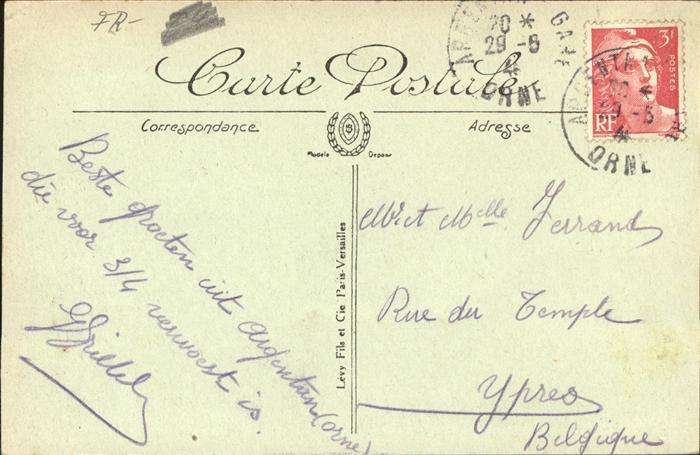 FR-
Carte Postale
Correspondance
Adresse
Modele Depose
ARGENTAN GARE
20 *
29 -5
ORNE
3F
POSTES
RF
ARGENTAN
ORNE
Beste groeten uit Argentan (orne)
die voor 3/4 verwoest is.
Levy Fils et Cie Paris-Versailles
Mr et Melle Ferrand
Rue du Temple
Ypres
Belgique